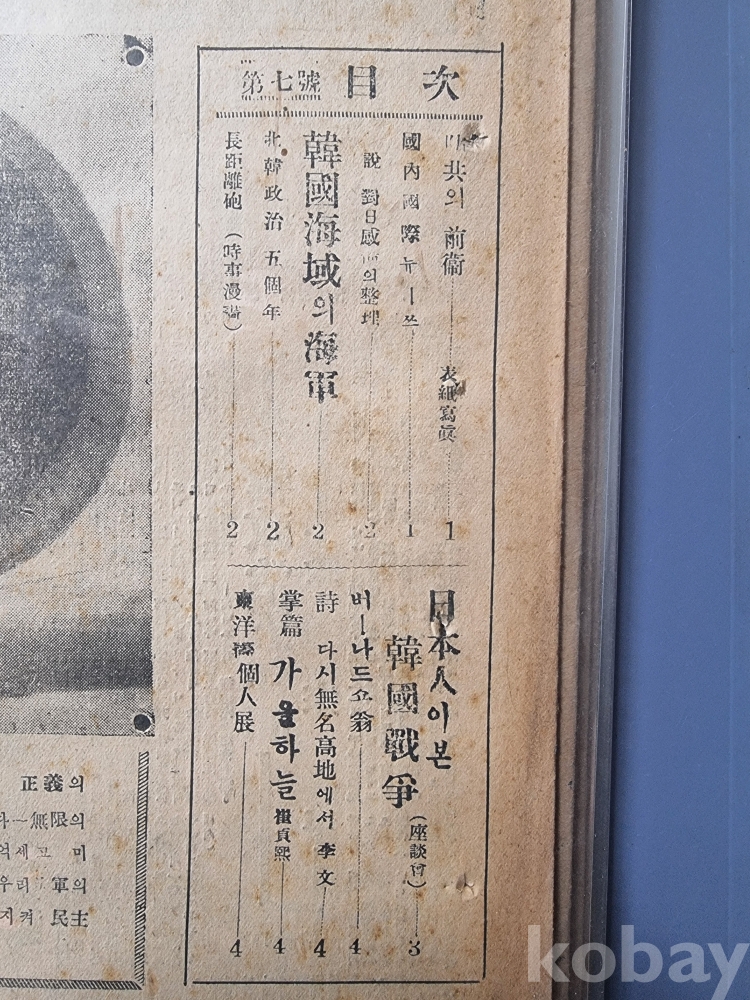 目次 第七號
共의 前衛 表紙寫眞 1
國內國際뉴ー쓰 1
說 對日感 의整理 2
韓國海域의海軍 2
北韓政治五個年 2
長距離砲(時事漫 ) 2
日本人이본
韓國戰爭(座談會) 3
버ー나드쇼翁 4
詩 다시無名高地에서 李文 4
掌篇 가을하늘 崔貞熙 4
東洋 個人展 4
正義의
無限의
억세고 미
우리 軍의
지켜 民主
kobay